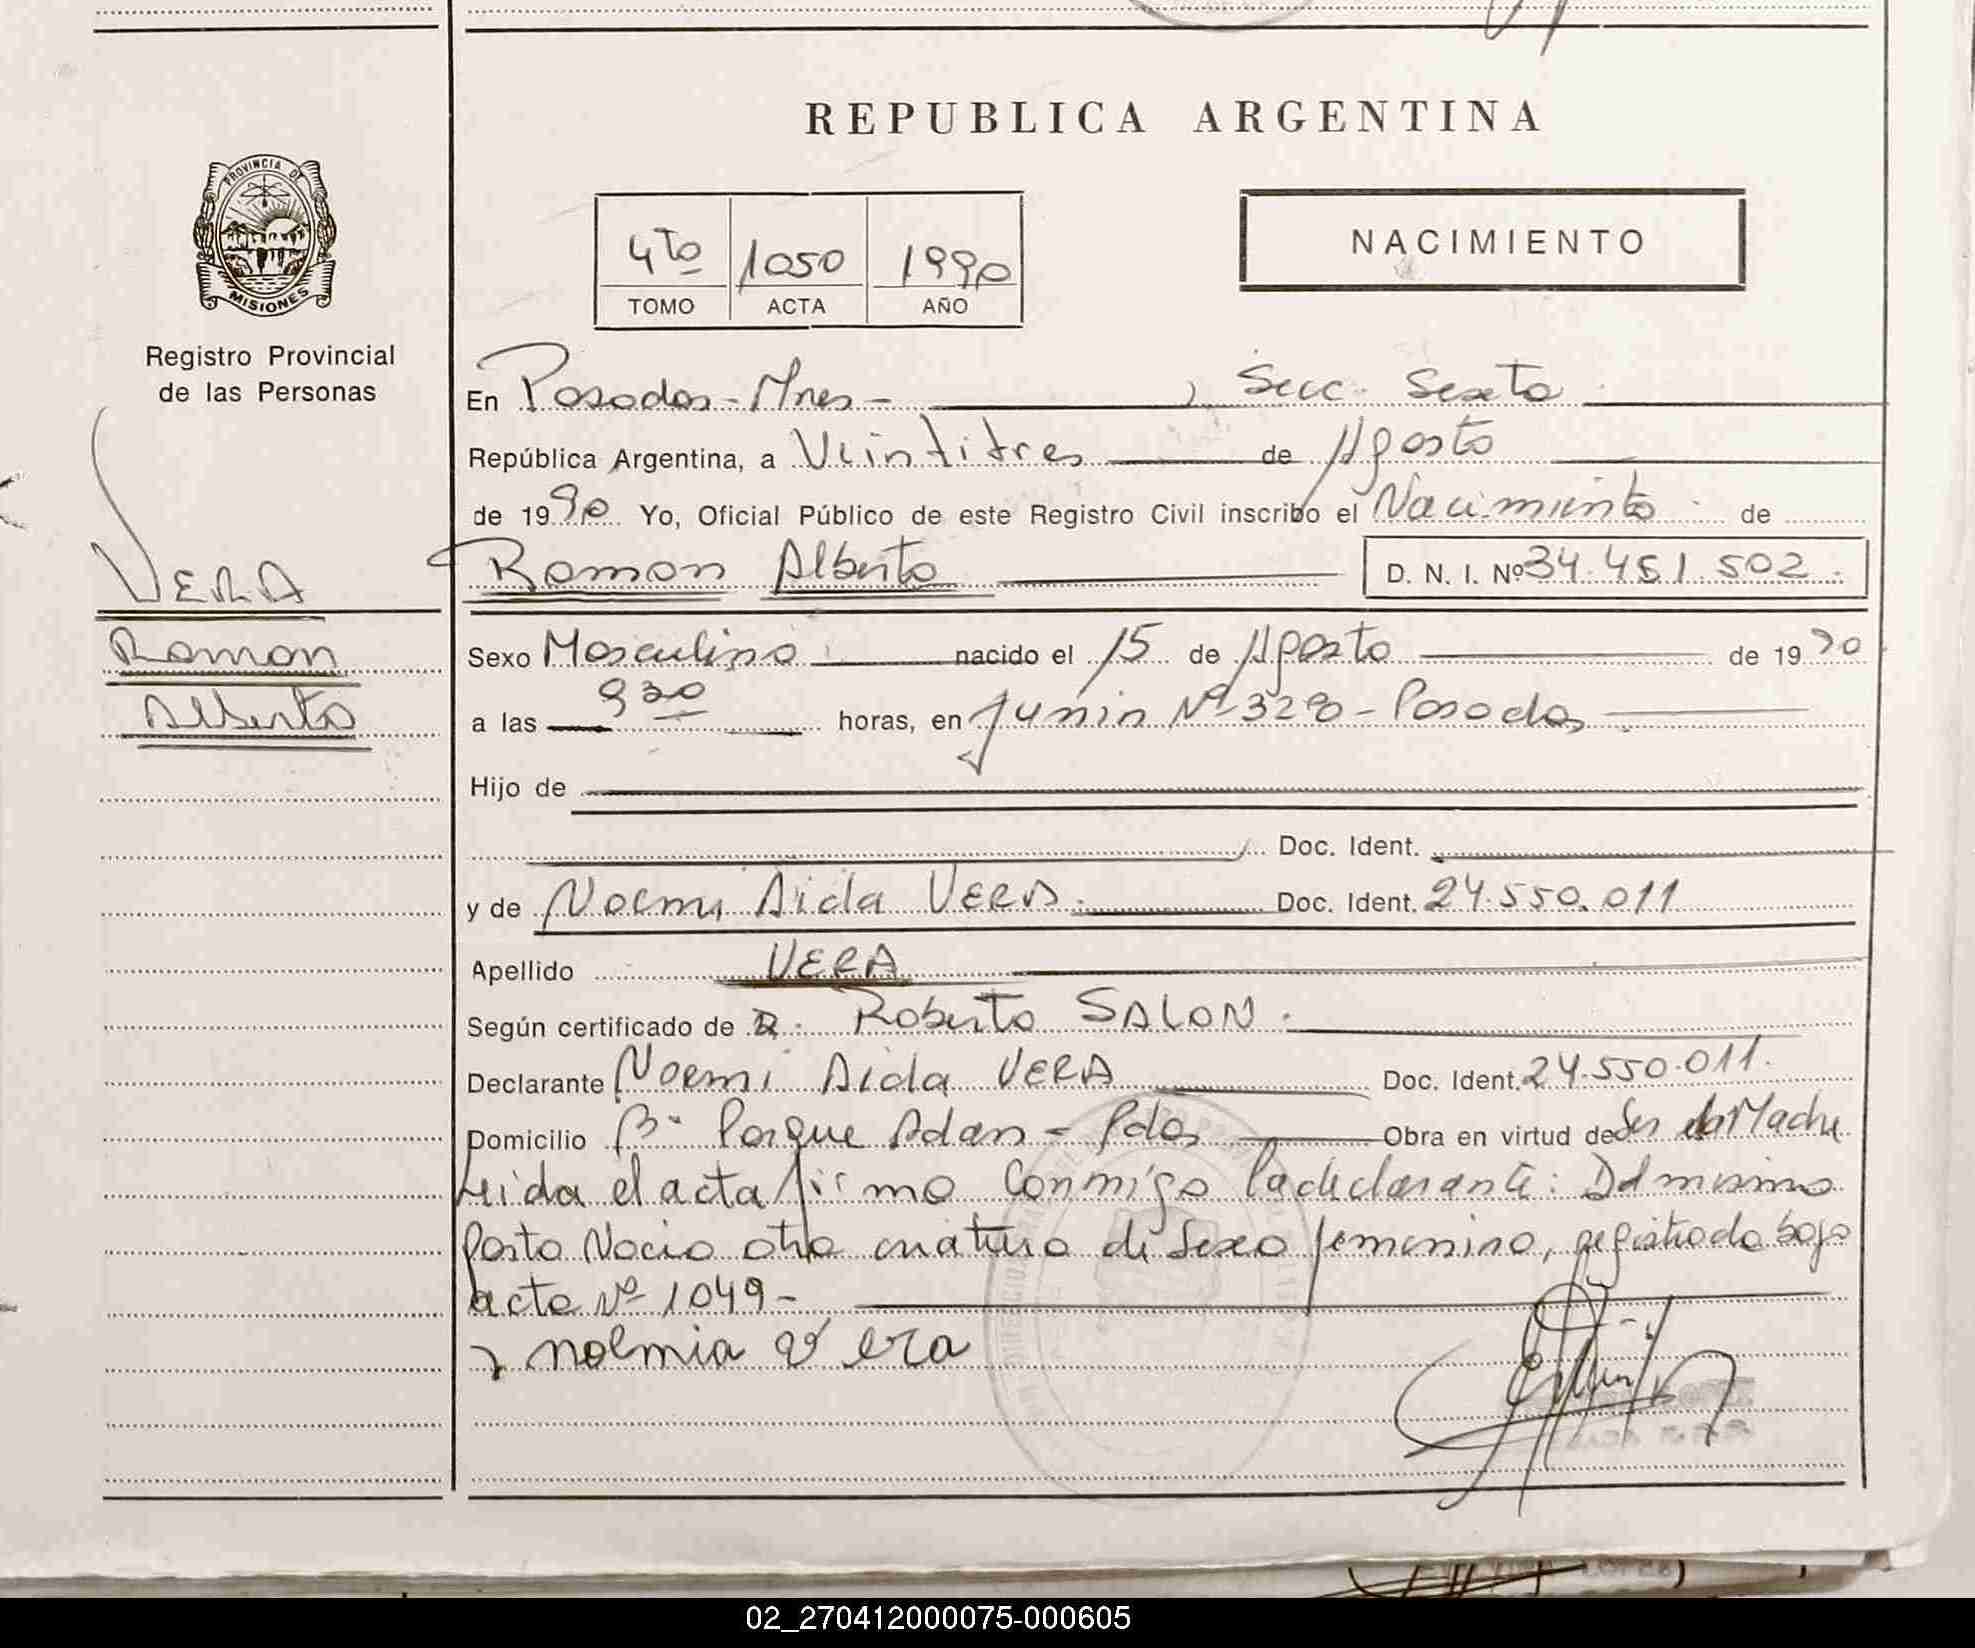 REPUBLICA ARGENTINA
PROVINCIA DE
MISIONES
Registro Provincial
de las Personas
4to 1050 1990
TOMO ACTA AÑO
NACIMIENTO
En Posadas - Mnes - , Secc. Sexta
República Argentina, a Veintitres de Agosto
de 1990 Yo, Oficial Público de este Registro Civil inscribo el Nacimiento de
Ramon Alberto D. N. I. Nº 34.451.502.
VERA
Ramon
Alberto
Sexo Masculino nacido el 15 de Agosto de 1990
a las 9 30 horas, en Junin Nº 328 - Posadas
Hijo de
Doc. Ident.
y de Noemi Aida VERA. Doc. Ident. 24.550.011
Apellido VERA
Según certificado de Roberto SALON.
Declarante Noemi Aida VERA Doc. Ident. 24.550.011.
Domicilio Bº Parque Adan - Pdas Obra en virtud de Ser la Madre
Leida el acta firma conmigo la declarante: Del mismo
Parto Nacio otra criatura de Sexo femenino, registrada bajo
acta Nº 1049 -
noemia vera
02_270412000075-000605